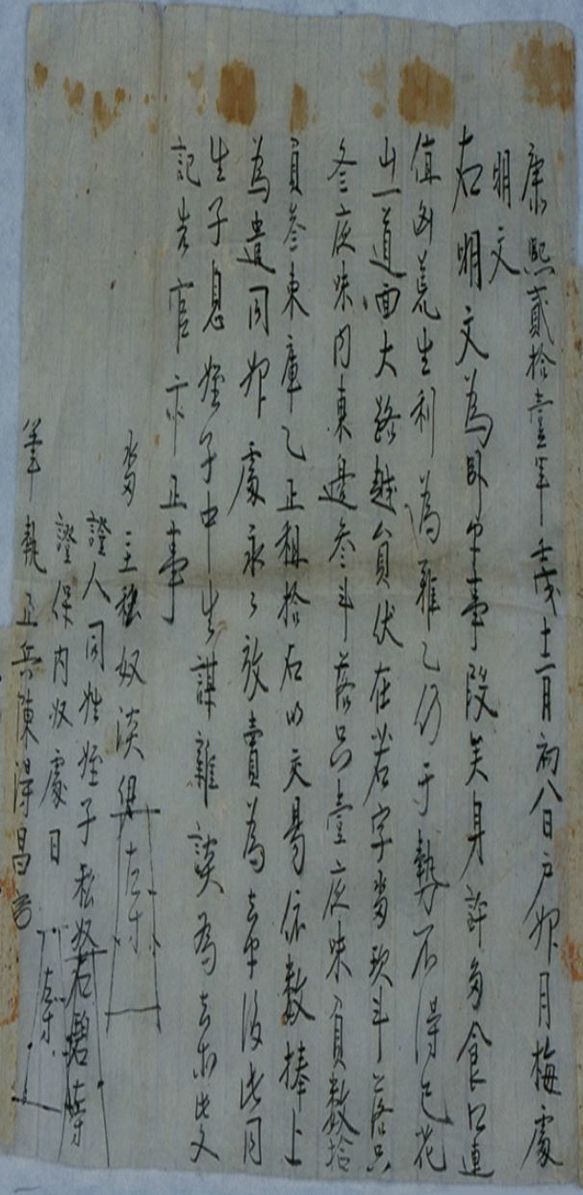 康熙貳拾壹年壬戌十二月初八日戶婢月梅處
明文
右明文爲臥乎事段矣身許多食口連
値凶荒生利爲難乙仍于勢不得已花
山一道面大路越員伏在若字畓玖斗落只
叁夜味內東邊叁斗落只壹夜味負數拾
負叁束庫乙正租拾石以交易依數捧上
爲遣同婢處永〻放賣爲去乎後此同
生子息姪子中生謀雜談爲去等此文
記告官卞正事
畓主私奴淡 左寸
證人同姓姪子私奴君碧左寸
證保內奴處日 左寸
筆執正兵陳得昌